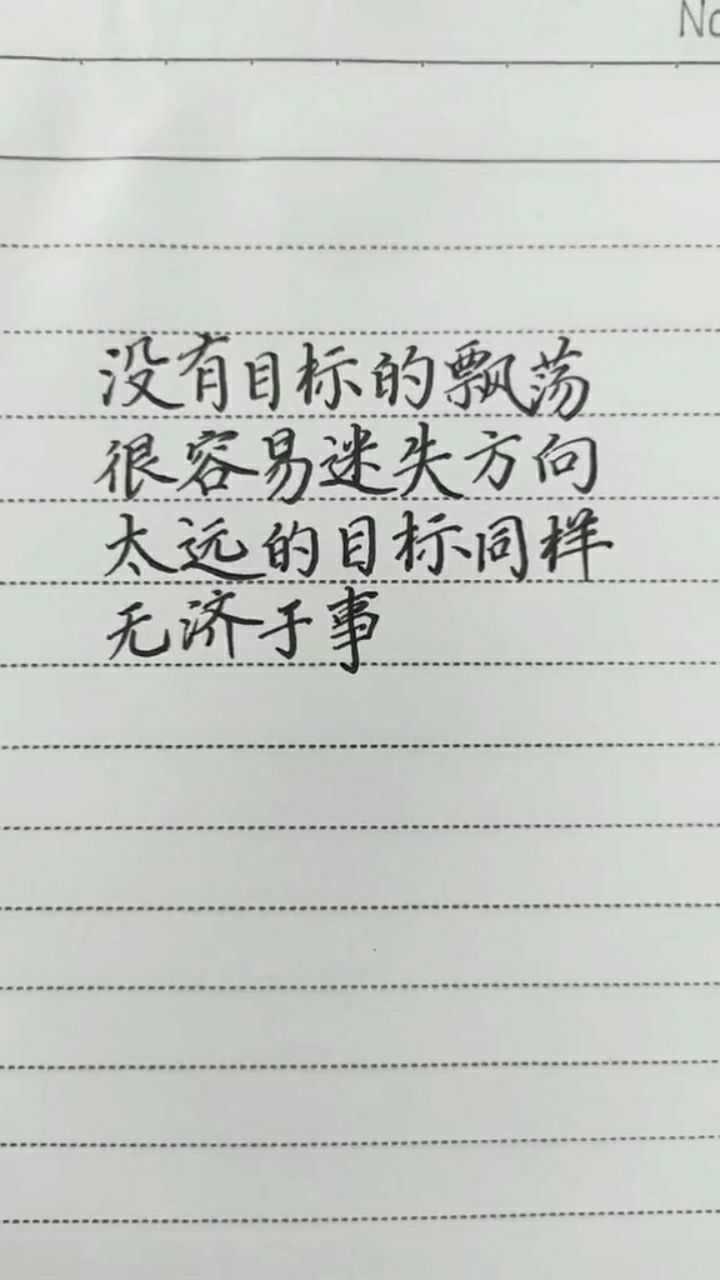 No
没有目标的飘荡
很容易迷失方向
太远的目标同样
无济于事